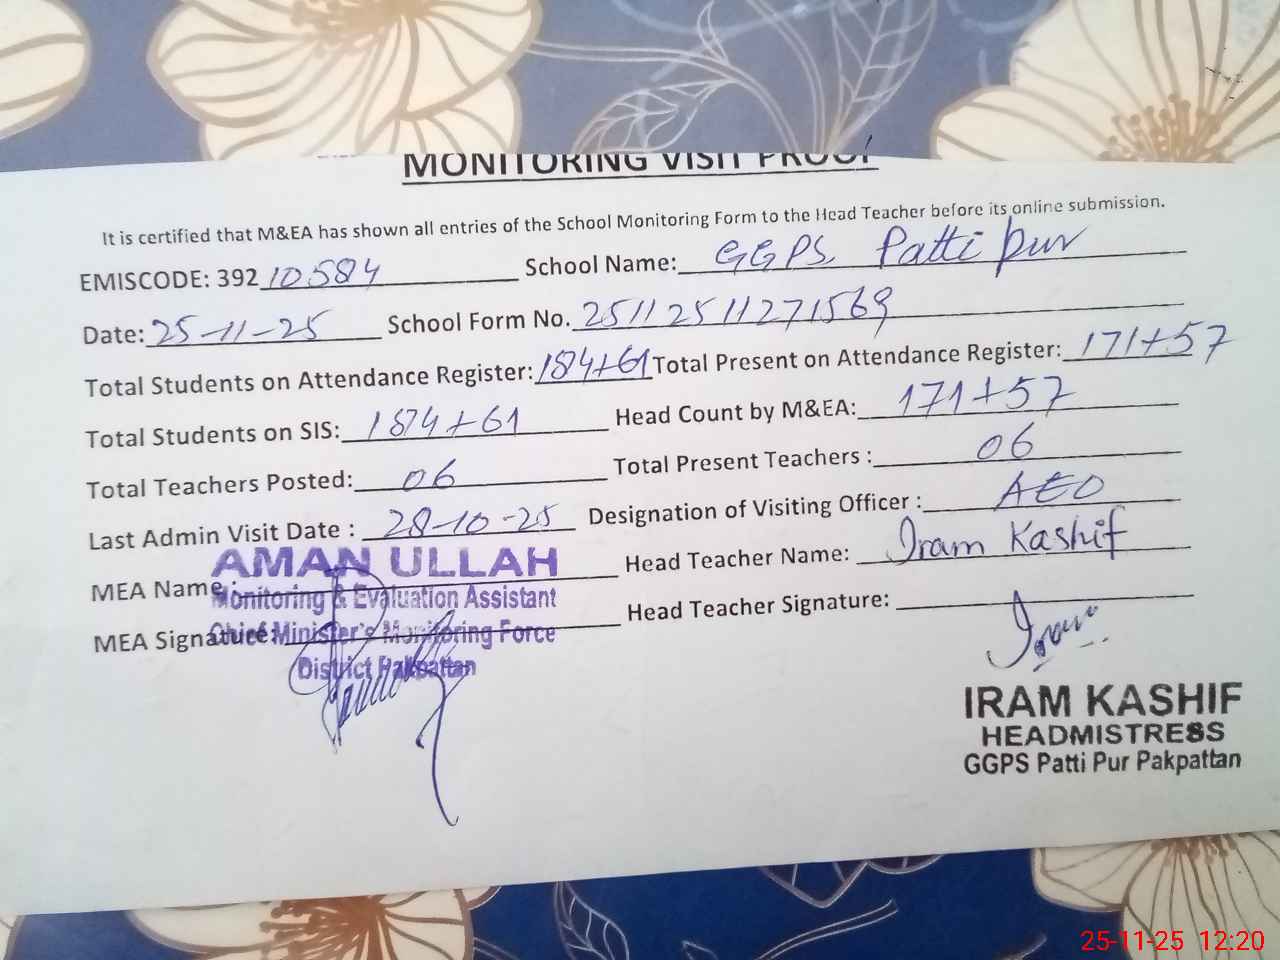 MONITORING VISIT PROOF
It is certified that M&EA has shown all entries of the School Monitoring Form to the Head Teacher before its online submission.
EMISCODE: 392 10584 School Name: GGPS Patti pur
Date: 25-11-25 School Form No. 25112511271569
Total Students on Attendance Register: 184+61 Total Present on Attendance Register: 171+57
Total Students on SIS: 184+61 Head Count by M&EA: 171+57
Total Teachers Posted: 06 Total Present Teachers : 06
Last Admin Visit Date : 28-10-25 Designation of Visiting Officer : AEO
MEA Name : AMAN ULLAH Head Teacher Name: Iram Kashif
Monitoring & Evaluation Assistant
MEA Signature: Head Teacher Signature: Iram
Chief Minister's Monitoring Force
District Pakpattan
IRAM KASHIF
HEADMISTRESS
GGPS Patti Pur Pakpattan
25-11-25 12:20